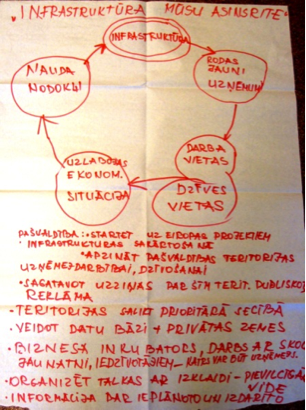 "INFRASTRUKTŪRA MŪSU ASINSRITE"
INFRASTRUKTŪRA
NAUDA
NODOKĻI
RODAS
JAUNI
UZŅĒMUMI
DARBA
VIETAS
DZĪVES
VIETAS
UZLABOJAS
EKONOM.
SITUĀCIJA
PAŠVALDĪBA: • STARTĒT UZ EIROPAS PROJEKTIEM
• INFRASTRUKTŪRAS SAKĀRTOŠANĀ
• APZINĀT PAŠVALDĪBAS TERITORIJAS
UZŅĒMĒJDARBĪBAI, DZĪVOŠANAI
• SAGATAVOT UZZIŅAS PAR ŠĪM TERIT. PUBLISKOJ
REKLĀMA
• TERITORIJAS SALIKT PRIORITĀRĀ SECĪBĀ
• VEIDOT DATU BĀZI + PRIVĀTAS ZEMES
• BIZNESA INKUBATORS, DARBS AR SKOL
JAUNATNI, IEDZĪVOTĀJIEM - KATRS VAR BŪT UZŅĒMĒJS.
• ORGANIZĒT TALKAS AR IZKLAIDI - PIEVILCĪGA
VIDE
• INFORMĀCIJA PAR IEPLĀNOTO UN IZDARĪTO